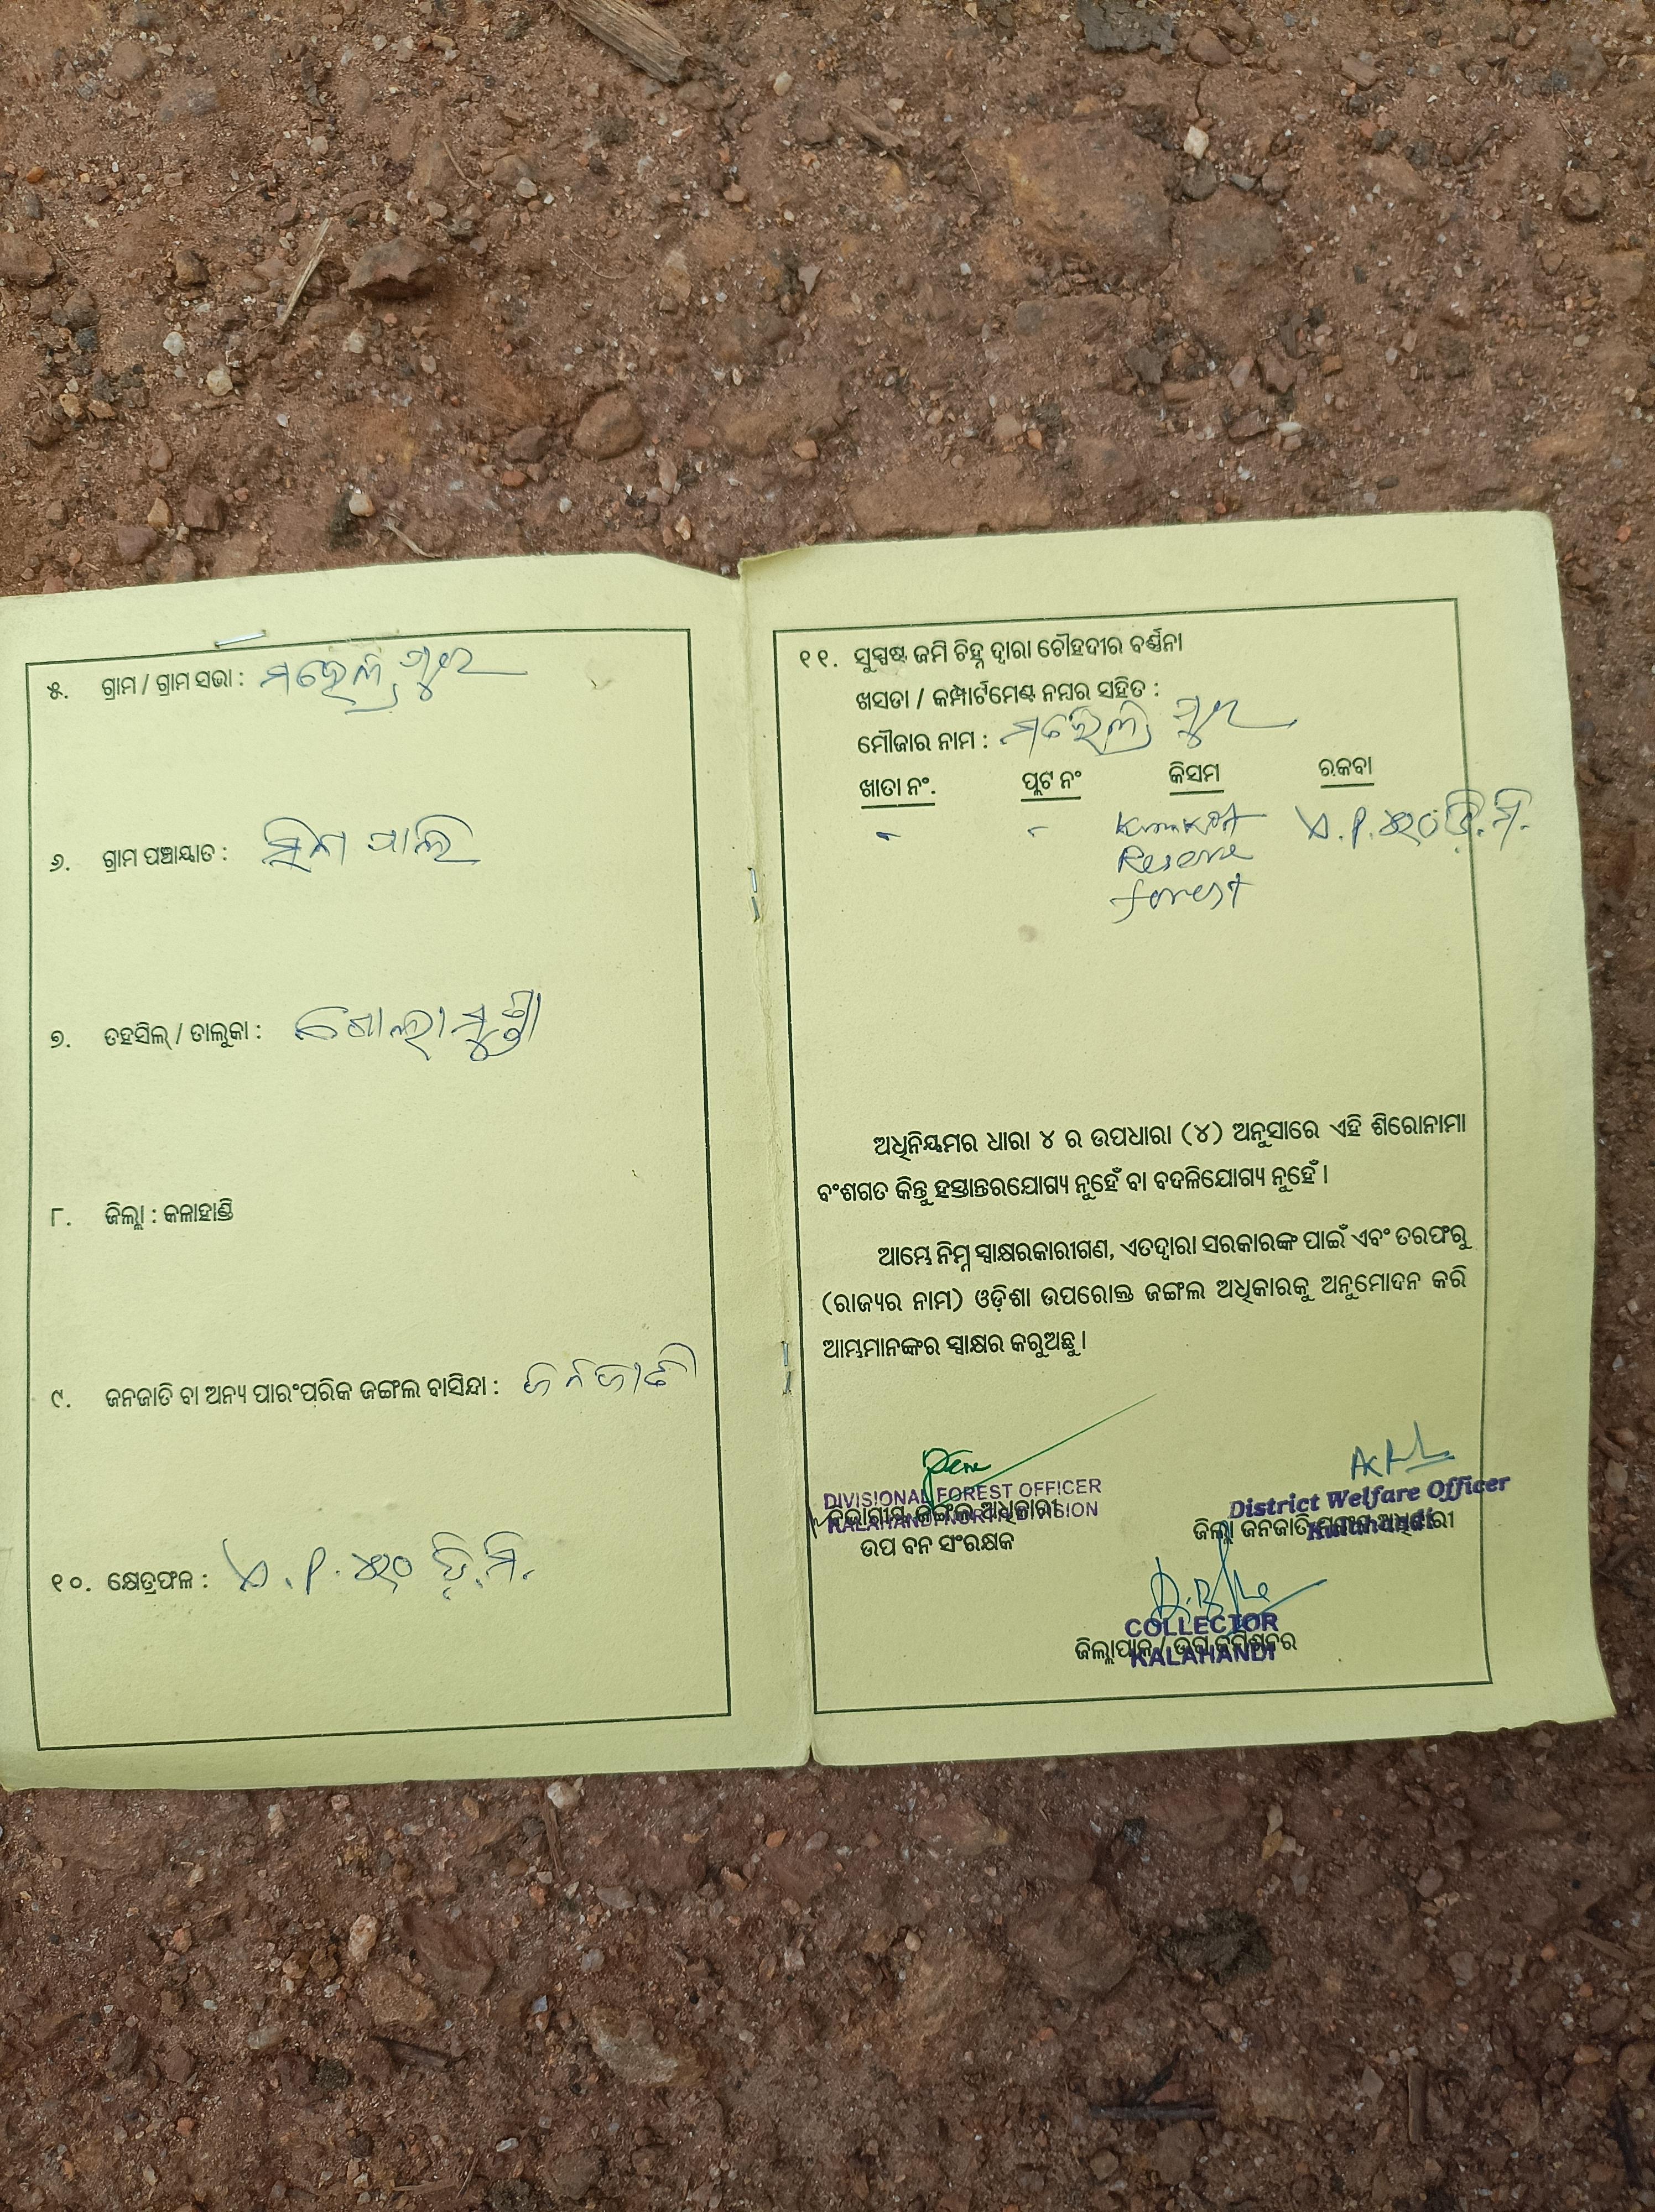 ୫. ଗ୍ରାମ / ଗ୍ରାମ ସଭା :
୬. ଗ୍ରାମ ପଞ୍ଚାୟାତ :
୭. ତହସିଲ୍ / ତାଲୁକା : ଗୋଲାମୁଣ୍ଡା
୮. ଜିଲ୍ଲା : କଳାହାଣ୍ଡି
୯. ଜନଜାତି ବା ଅନ୍ୟ ପାରଂପରିକ ଜଙ୍ଗଲ ବାସିନ୍ଦା : ଜନଜାତି
୧୦. କ୍ଷେତ୍ରଫଳ : ଡ଼ି.ମି.
୧୧. ସୁସ୍ପଷ୍ଟ ଜମି ଚିହ୍ନ ଦ୍ୱାରା ଚୌହଦୀର ବର୍ଣ୍ଣନା
ଖସଡା / କମ୍ପାର୍ଟମେଣ୍ଟ ନମ୍ବର ସହିତ :
ମୌଜାର ନାମ :
ଖାତା ନଂ. ପ୍ଲଟ ନଂ କିସମ ରକବା
- - ଡ଼ି.ମି.
Reserve
forest
ଅଧିନିୟମର ଧାରା ୪ ର ଉପଧାରା (୪) ଅନୁସାରେ ଏହି ଶିରୋନାମା
ବଂଶଗତ କିନ୍ତୁ ହସ୍ତାନ୍ତରଯୋଗ୍ୟ ନୁହେଁ ବା ବଦଳିଯୋଗ୍ୟ ନୁହେଁ ।
ଆମ୍ଭେ ନିମ୍ନ ସ୍ୱାକ୍ଷରକାରୀଗଣ, ଏତଦ୍ୱାରା ସରକାରଙ୍କ ପାଇଁ ଏବଂ ତରଫରୁ
(ରାଜ୍ୟର ନାମ) ଓଡ଼ିଶା ଉପରୋକ୍ତ ଜଙ୍ଗଲ ଅଧିକାରକୁ ଅନୁମୋଦନ କରି
ଆମ୍ଭମାନଙ୍କର ସ୍ୱାକ୍ଷର କରୁଅଛୁ ।
DIVISIONAL FOREST OFFICER
KALAHANDI NORTH DIVISION
ବିଭାଗୀୟ ଜଙ୍ଗଲ ଅଧିକାରୀ
ଉପ ବନ ସଂରକ୍ଷକ
District Welfare Officer
Kalahandi
ଜିଲ୍ଲା ଜନଜାତି ମଙ୍ଗଳ ଅଧିକାରୀ
COLLECTOR
KALAHANDI
ଜିଲ୍ଲାପାଳ / ଉପ କମିଶନର